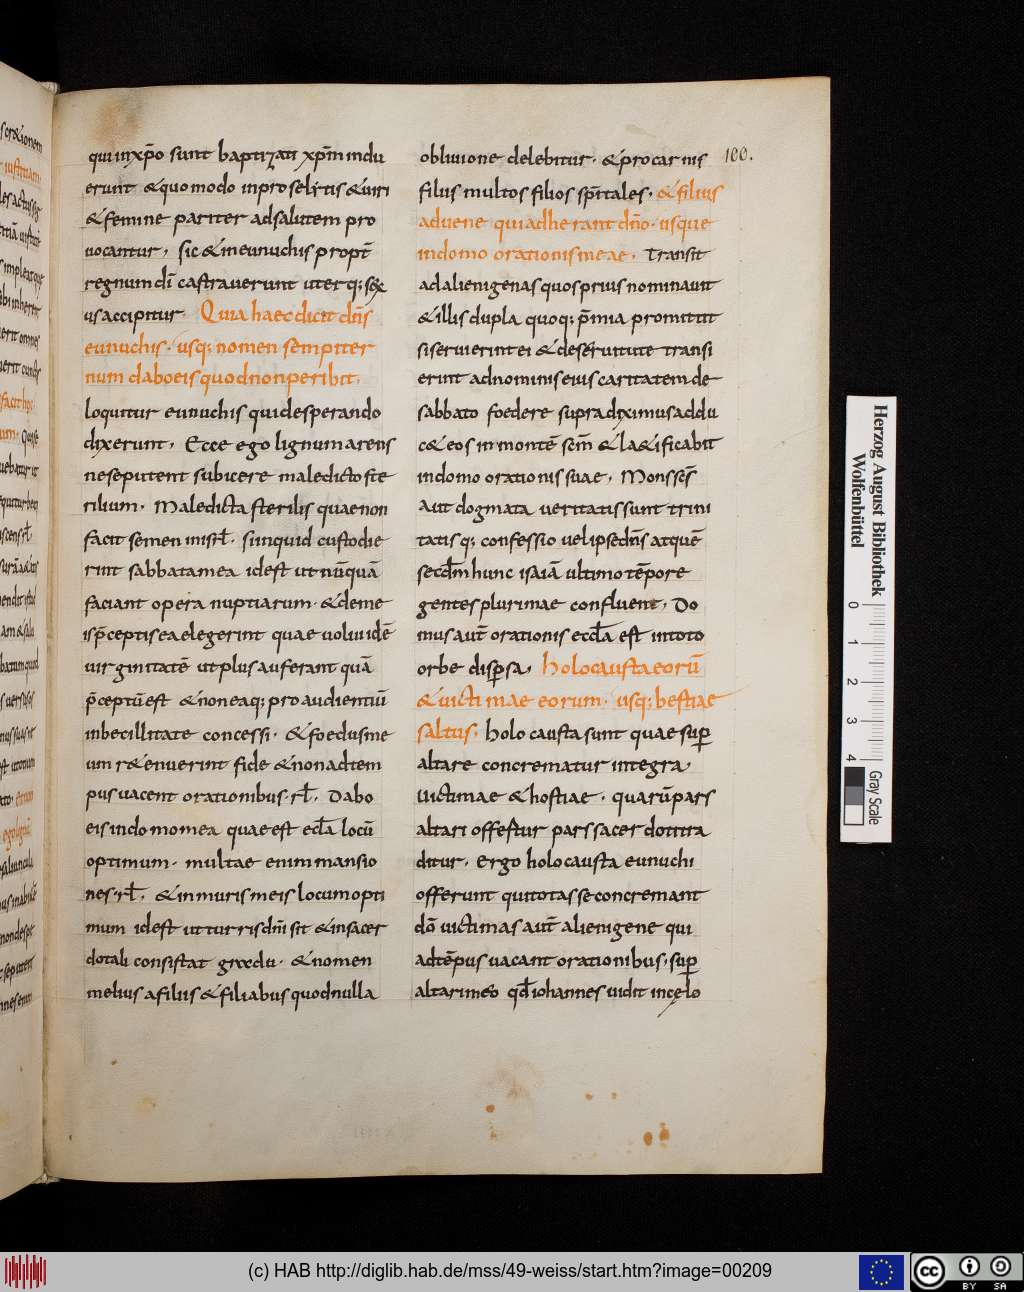 qui in xp̄o sunt baptizati xp̄m indu
erunt & quomodo in proselitis & uiri
& femine pariter ad salutem pro
uocantur, sic & in eunuchis propt̄
regnum dī castrauerunt uterq; sex
us accipitur. Quia haec dicit dn̄s
eunuchis. usq; nomen sempiter
num dabo eis quod non peribit.
loquitur eunuchis qui desperando
dixerunt, Ecce ego lignum arens
ne se putent subicere maledicto ste
rilium. Maledicta sterilis quae non
facit semen in isrl̄. si inquid custodie
rint sabbata mea id est ut nūquā
faciant opera nuptiarum. & de me
is p̄ceptis ea elegerint quae uolui idē
uirginitatē ut plus auferant quā
p̄ceptū est & non eaq; pro audientiū
inbecillitate concessi. & foedus me
um r&enuerint fide & non ad tem
pus uacent orationibus. rl̄. Dabo
eis in domo mea quae est eccl̄a locū
optimum. multae enim mansio
nes. rl̄. & in muris meis locum opti
mum id est ut turris dn̄i sit & in sacer
dotali consistat gradu. & nomen
melius a filiis & filiabus quod nulla
obliuione delebitur. & pro carnis
filiis multos filios sp̄itales. & filius
aduene qui adherant dn̄o. usque
in domo orationis meae. Transit
ad alienigenas quos prius nominauit
& illis dupla quoq; p̄mia promittit
si seruierint ei & de seruitute transi
erint ad nominis eius caritatem de
sabbato foedere supra diximus addu
c& eos in montē scm̄ & la&ificabit
in domo orationis suae. Mons scs̄
Aut dogmata ueritatis sunt trini
tatisq; confessio uel ipse dn̄s atquē
secdm̄ hunc isaiā ultimo tēpore
gentes plurimae confluent. Do
mus aut̄ orationis eccl̄a est in toto
orbe disp̱sa, holocausta eorū
& uictimae eorum. usq; bestiae
saltus. holocausta sunt quae sup̱
altare concrematur integra,
Uictimae & hostiae. quarū pars
altari offertur pars sacerdoti tra
ditur. Ergo holocausta eunuchi
offerunt qui totas se concremant
dō uictimas aut̄ alienigene qui
ad tēpus uacant orationibus. sup̱
altari meo qd̄ iohannes uidit in cęlo
100.
Herzog August Bibliothek
Wolfenbüttel
0 1 2 3 4
Gray Scale
(c) HAB http://diglib.hab.de/mss/49-weiss/start.htm?image=00209
cc BY SA